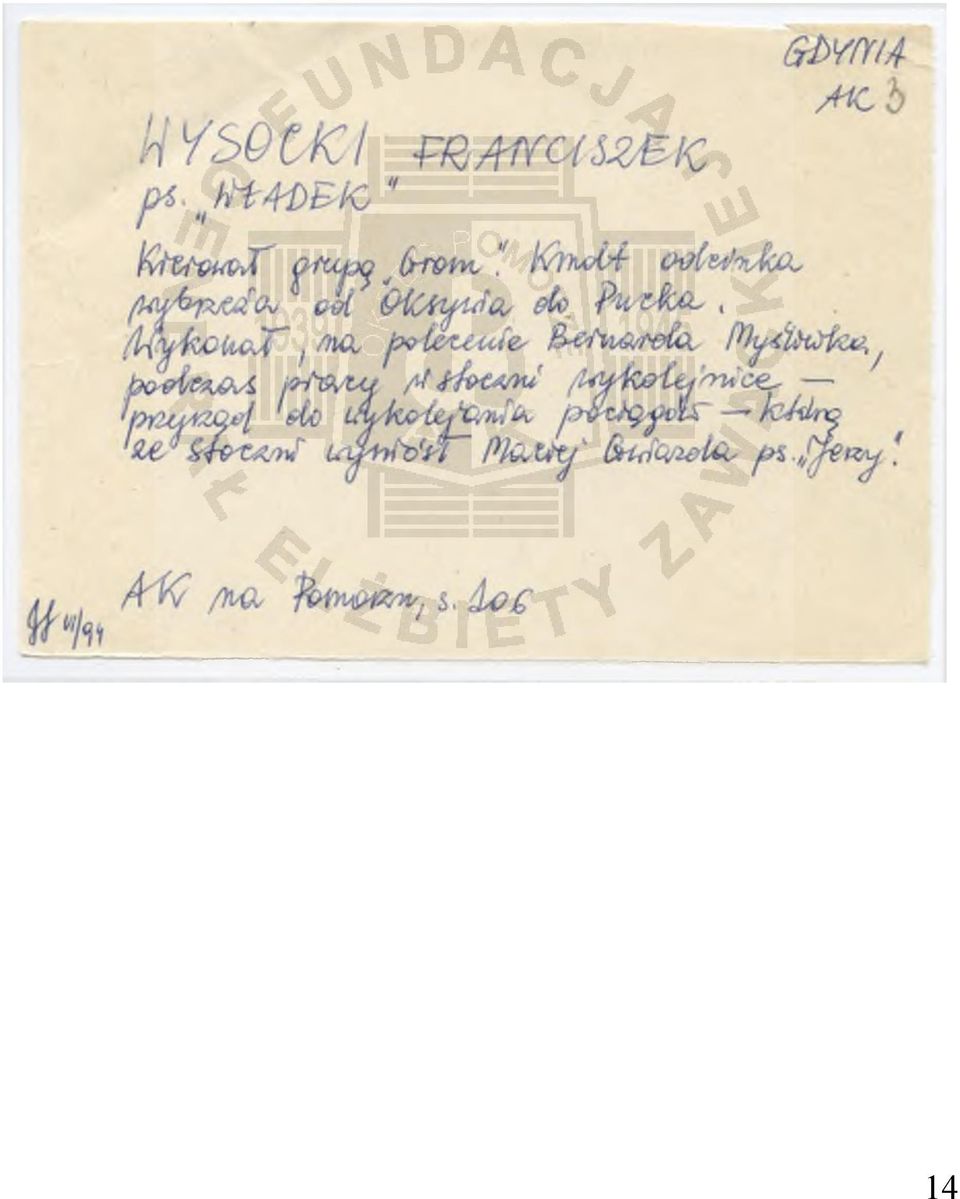 GDYNIA
AK 3
WYSOCKI FRANCISZEK
ps. „WŁADEK"
Kierował grupą „Grom". Kmdt odcinka
wybrzeża od Oksywia do Pucka.
Wykonał, na polecenie Bernarda Myśliwka,
podczas pracy w stoczni wykolejnicę —
przyrząd do wykolejania pociągów — którą
ze stoczni wyniósł Maciej Gwiazda ps. „Jerzy".
AK na Pomorzu, s. 106
VI/94
FUNDACJA
ELŻBIETY ZAWACKIEJ
14